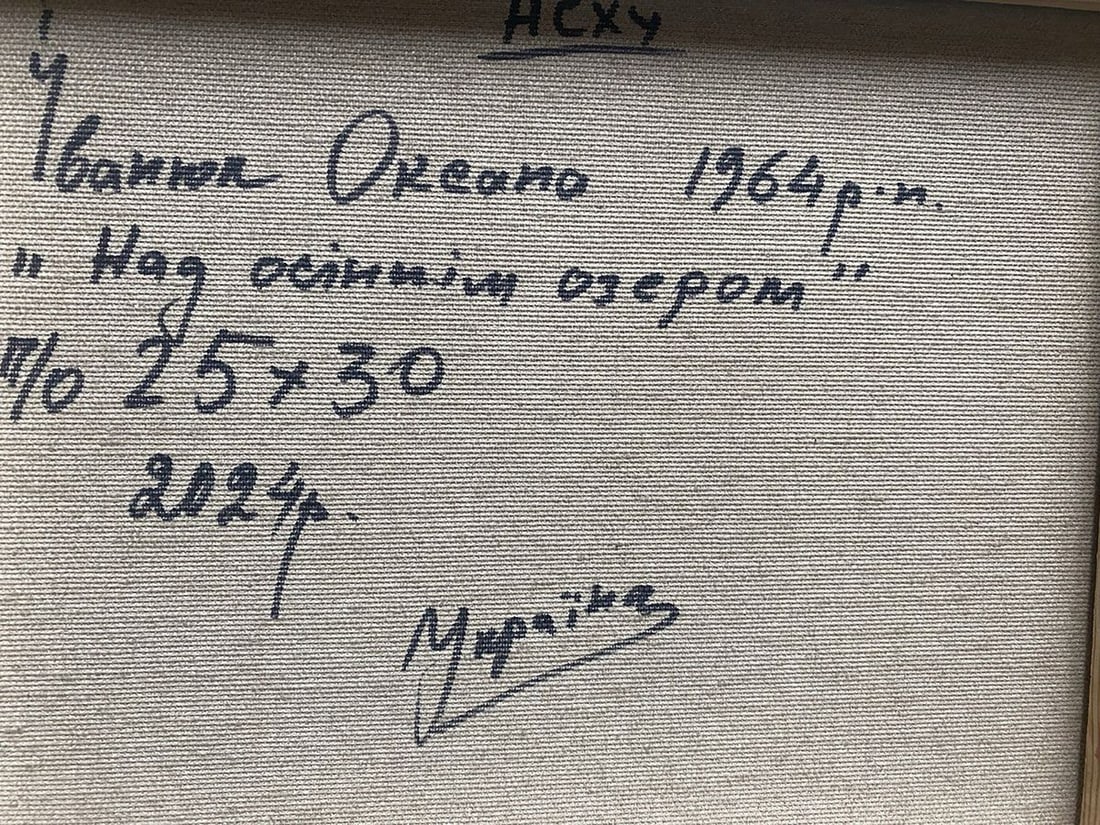 НСХУ
Іванюк Оксана 1964р.н.
„Над осіннім озером"
п/о 25х30
2024р.
Україна